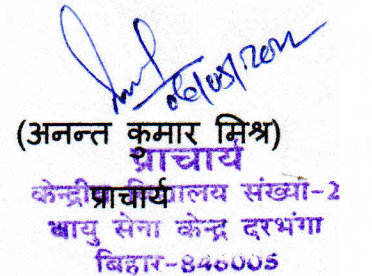 06/05/2022
(अनन्त कुमार मिश्र)
प्राचार्य
प्राचार्य
केन्द्रीय विद्यालय संख्या-2
वायु सेना केन्द्र दरभंगा
बिहार-846005